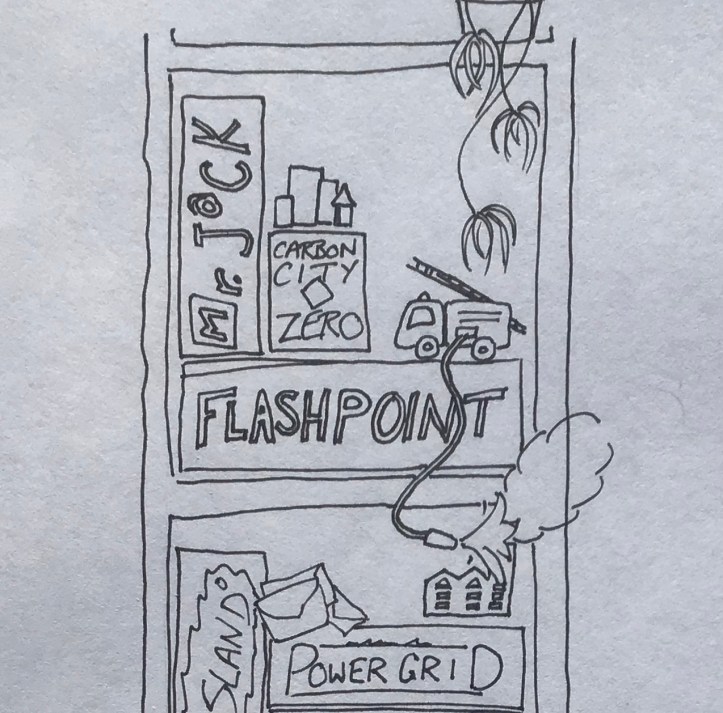 Mr. JaCK
CARBON
CITY
ZERO
FLASHPOINT
SLAND
POWER GRID